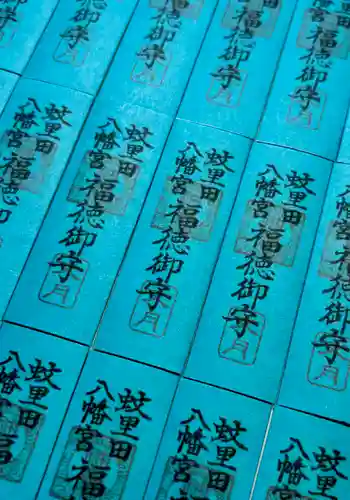 御守
徳御守
福徳御守
宮福徳御守
蚊里田
八幡宮
福徳
蚊里田
八幡宮
福徳御守
蚊里田
八幡宮
福徳御守
蚊里田
八幡宮
福徳御守
徳御守
蚊里田
八幡宮
福
蚊里田
八幡宮
福
蚊里田
八幡宮
蚊里田
八幡宮